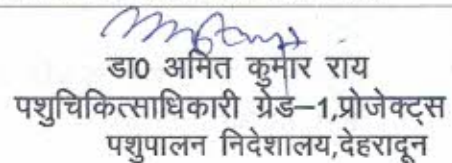 डा0 अमित कुमार राय
पशुचिकित्साधिकारी ग्रेड–1,प्रोजेक्ट्स
पशुपालन निदेशालय,देहरादून